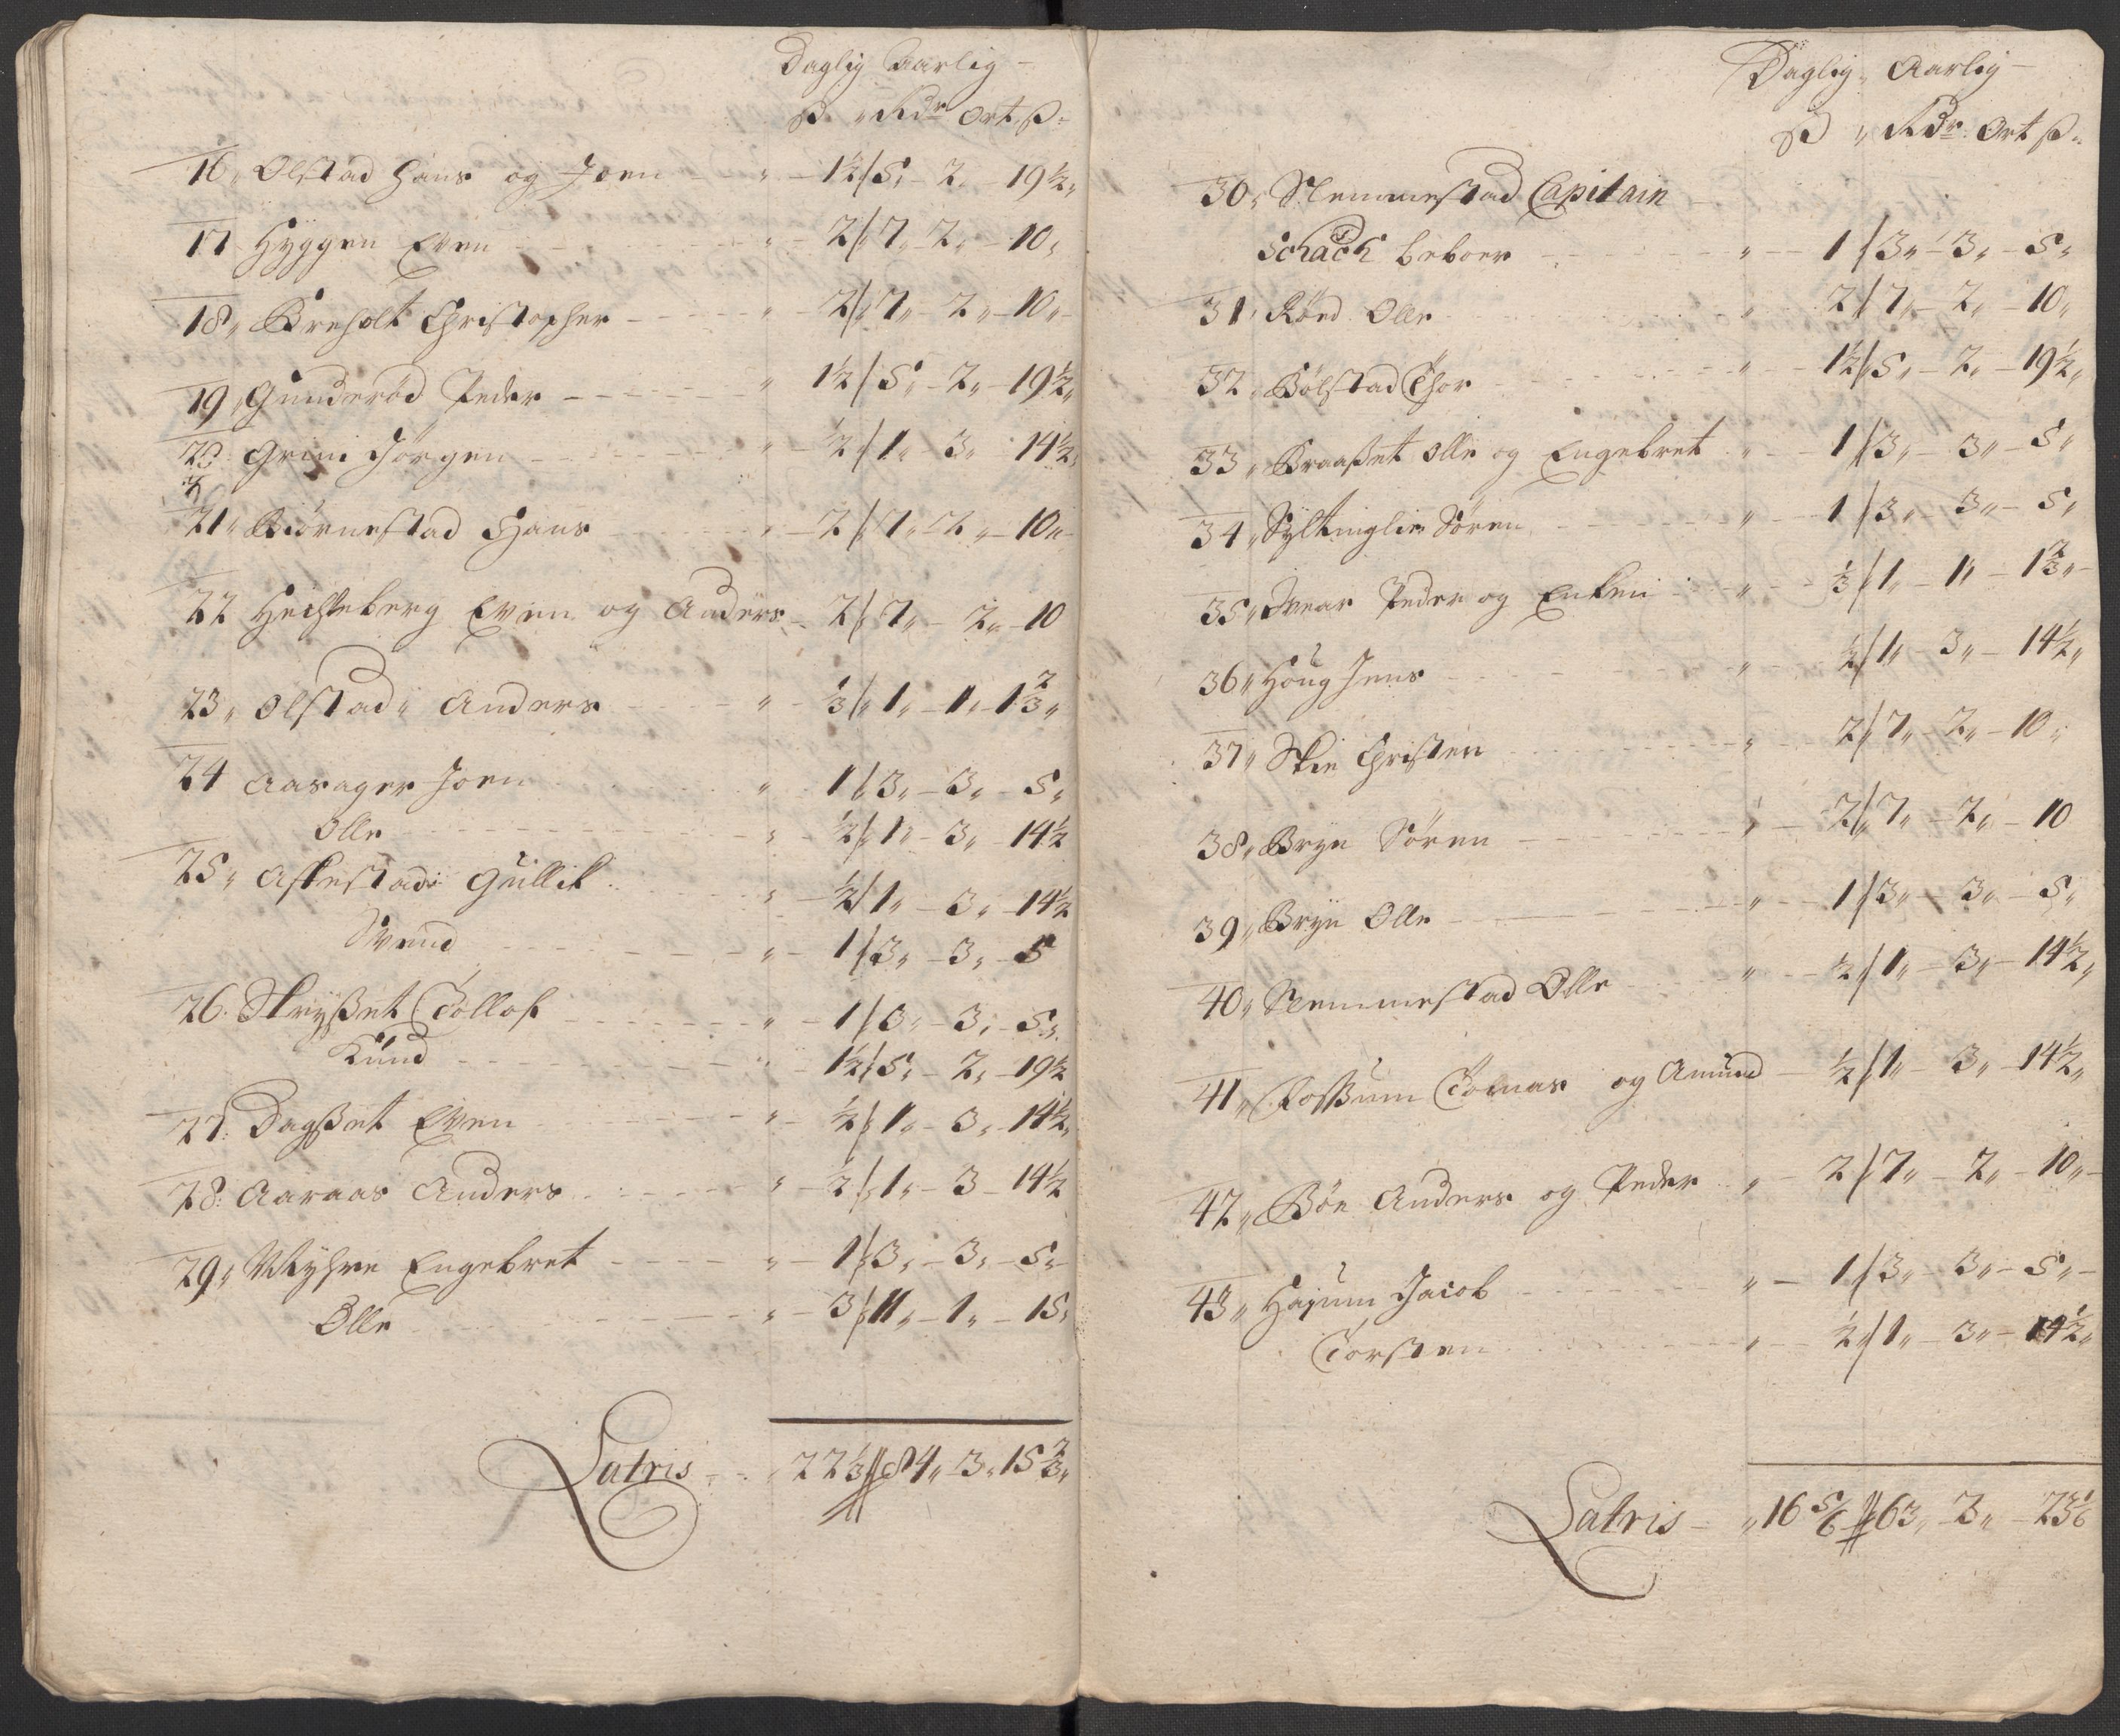 Daglig Aarlig
ß Rdr Ort ß
16 Olstad Hans og Joen 1½ 5 2 19½
17 Hyggen Even 2 7 2 10
18 Breholt Christopher 2 7 2 10
19 Gunderød Peder 1½ 5 2 19½
20 Grini Jørgen ½ 1 3 14½
21 Biørnestad Hans 2 7 2 10
22 Hechleberg Even og Anders 2 7 2 10
23 Olstad Anders ⅓ 1 1 1⅔
24 Aasager Joen 1 3 3 5
Olle ½ 1 3 14½
25 Askestad Gullik ½ 1 3 14½
Svend 1 3 3 5
26 Skryßet Tollof 1 3 3 5
Knud 1½ 5 2 19½
27 Dagßet Even ½ 1 3 14½
28 Aaraas Anders ½ 1 3 14½
29 Myhre Engebret 1 3 3 5
Olle 3 11 1 15
Latris 22⅓ 84 3 15⅔
Daglig Aarlig
ß Rdr Ort ß
30 Nemmestad Capitain
Schack beboer 1 3 3 5
31 Rød Olle 2 7 2 10
32 Bølstad Thor 1½ 5 2 19½
33 Braaßet Olle og Engebret 1 3 3 5
34 Syltinglie Søren 1 3 3 5
35 Ovnar Peder og Enken ⅓ 1 1 1⅔
36 Houg Jens ½ 1 3 14½
37 Skie Christen 2 7 2 10
38 Bryn Søren 2 7 2 10
39 Bryn Olle 1 3 3 5
40 Nemmestad Olle ½ 1 3 14½
41 Foßum Tomas og Amund ½ 1 3 14½
42 Bøe Anders og Peder 2 7 2 10
43 Hajum Jacob 1 3 3 5
Torsten ½ 1 3 14½
Latris 16⅚ 63 2 23⅙